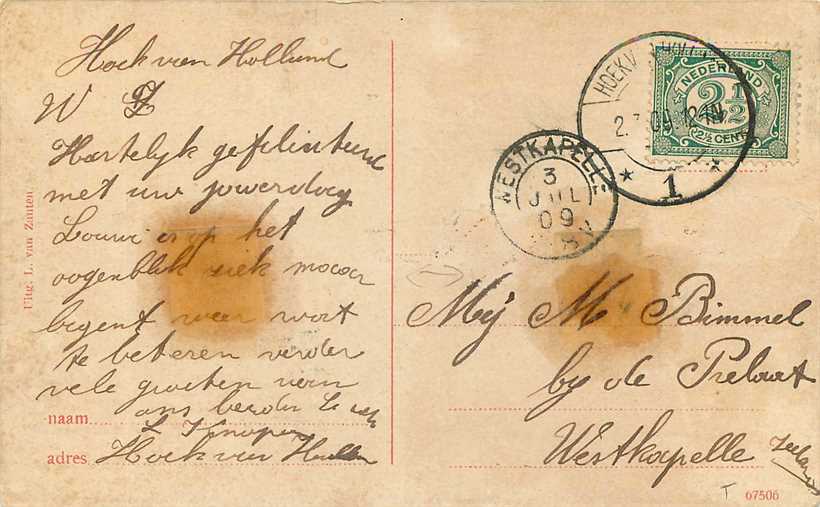 Hoek van Holland
W
Hartelyk gefeliciteerd
met uw
is op het
oogenblik ziek
begent weer wort
te beteren verder
vele groeten van
ons
naam
adres Hoek van Hollan
Uitg. L. van Zanten.
HOEK V. HOLL
2.7.09. 12-1N
1
NEDERLAND
2½
2½ CENT
WESTKAPELLE
3
JUL
09
8 V
Mej M Bimmel
by de Prelaat
Westkapelle
T
67506